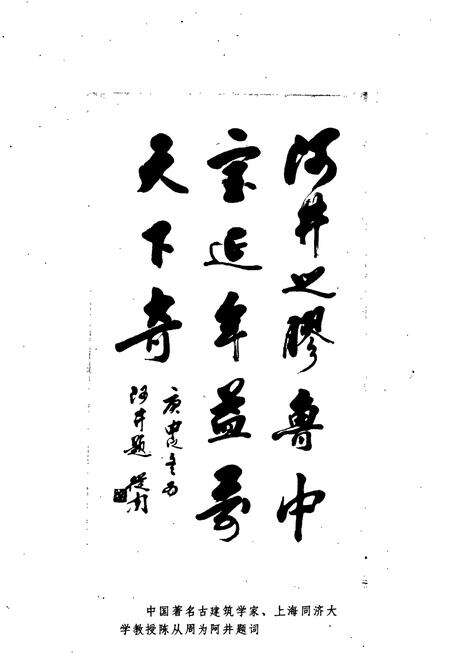 阿井之膠魯中
宝延年益寿
天下奇
庚申为
阿井题 从周
中国著名古建筑学家、上海同济大
学教授陈从周为阿井题词